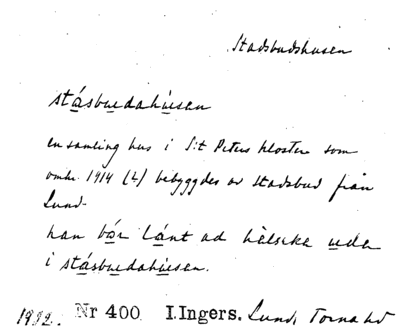 Stadsbudshusen
stásbuedahúesen
en samling hus i S:t Peters kloster som
omkr. 1914 (?) bebyggdes av stadsbud från
Lund.
han bór lánt ad hèlsike uder
i stásbuedahúesen.
1932. Nr 400 I.Ingers. Lund, Torna hd